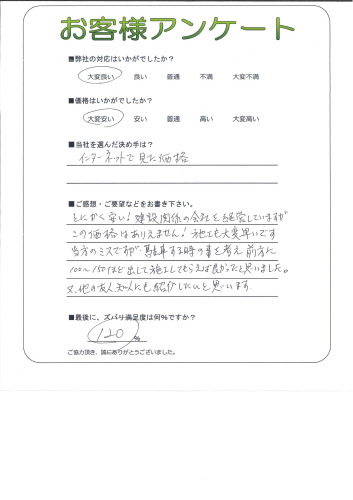 お客様アンケート
■弊社の対応はいかがでしたか？
大変良い 良い 普通 不満 大変不満
■価格はいかがでしたか？
大変安い 安い 普通 高い 大変高い
■当社を選んだ決め手は？
インターネットで見た価格
■ご感想・ご要望などをお書き下さい。
とにかく安い！建設関係の会社を経営していますが
この価格はありえません！施工も大変早いです
当方のミスですが、駐車する時の事を考え前方に
100〜150ほど出して施工してもらえば良かったと思いました。
又、他の友人、知人にも紹介したいと思います。
■最後に、ズバリ満足度は何%ですか？
120 %
ご協力頂き、誠にありがとうございました。